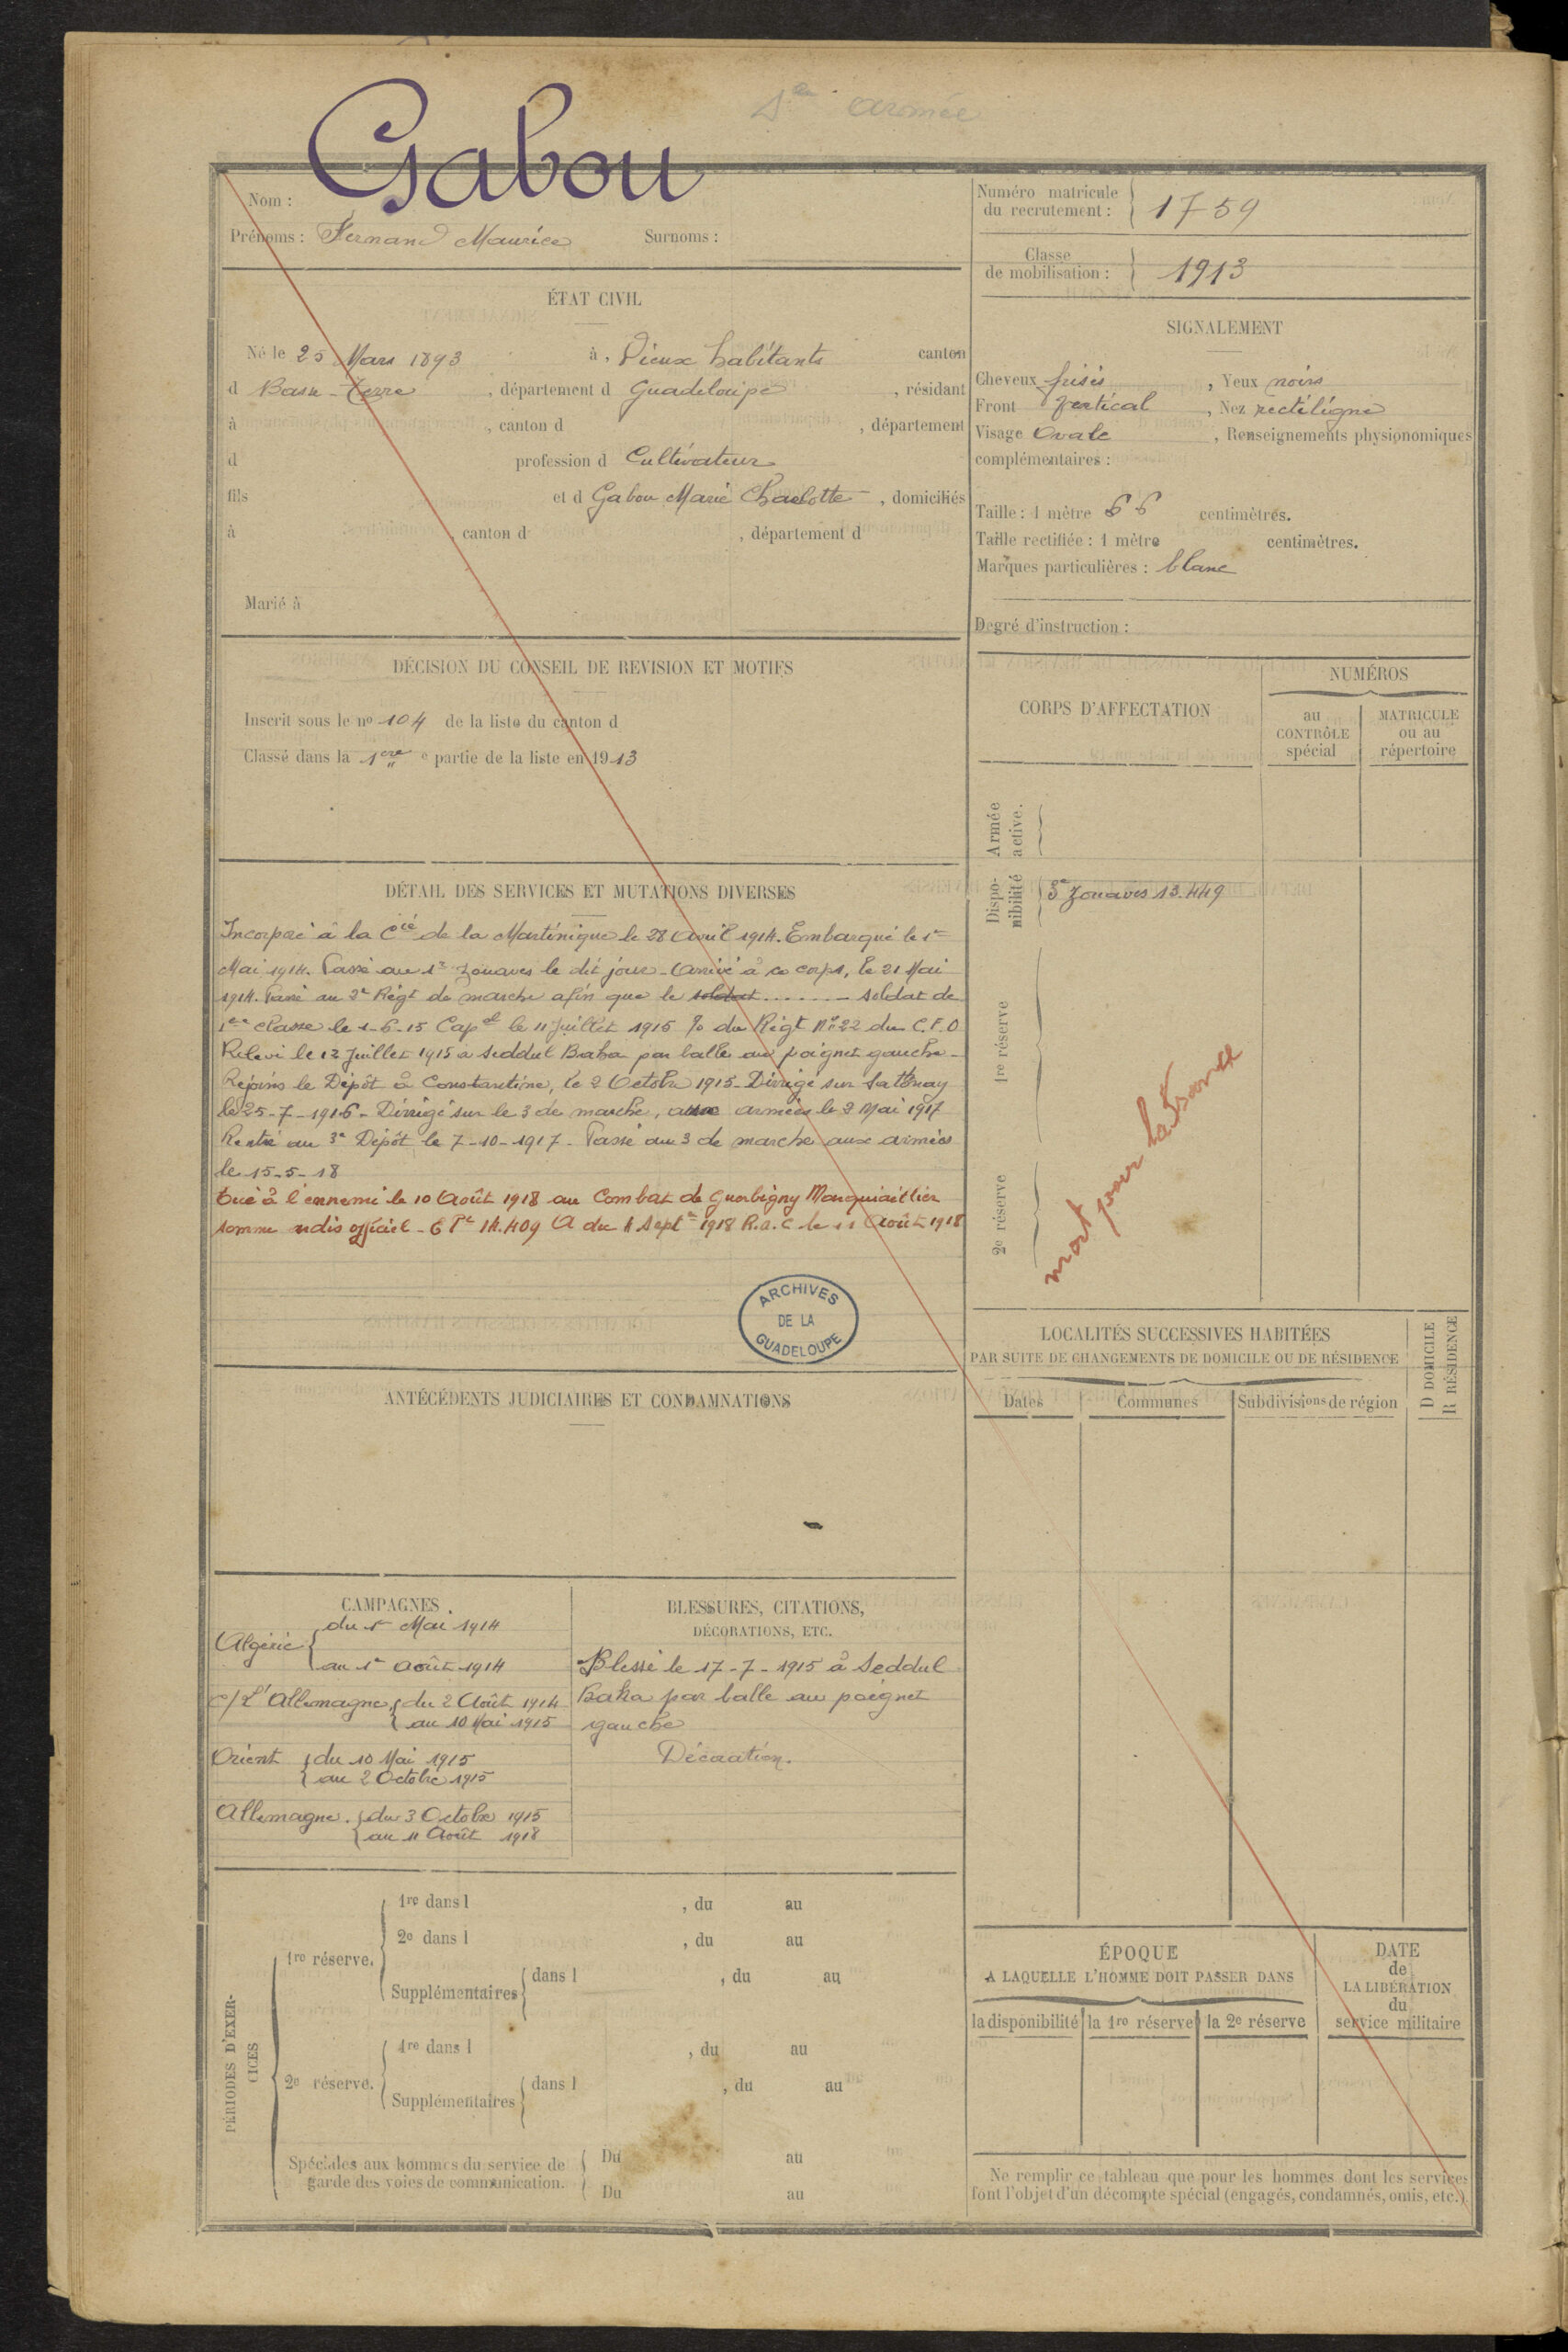 armée
Gabou
Nom :
Prénoms : Fernand Maurice Surnoms :
Numéro matricule du recrutement : 1759
Classe de mobilisation : 1913
ÉTAT CIVIL
Né le 25 Mars 1893 à, Vieux habitants canton
d Basse-terre, département d Guadeloupe, résidant
à , canton d , département
d profession d Cultivateur
fils et d Gabou Marie Charlotte, domiciliés
à , canton d , département d
Marié à
SIGNALEMENT
Cheveux frisés, Yeux noirs
Front vertical, Nez rectiligne
Visage Ovale, Renseignements physionomiques
complémentaires :
Taille : 1 mètre 66 centimètres.
Taille rectifiée : 1 mètre centimètres.
Marques particulières : blanc
Degré d'instruction :
DÉCISION DU CONSEIL DE REVISION ET MOTIFS
Inscrit sous le no 104 de la liste du canton d
Classé dans la 1ere e partie de la liste en 1913
CORPS D'AFFECTATION
NUMÉROS
au CONTRÔLE spécial
MATRICULE ou au répertoire
Armée active.
Disponibilité
3e Zouaves 13.449
1re réserve
2e réserve
mort pour la France
DÉTAIL DES SERVICES ET MUTATIONS DIVERSES
Incorporé à la Cie de la Martinique le 28 Avril 1914. Embarqué le 1er
Mai 1914. Passé au Zouaves le dit jour - Arrivé à ce corps, le 21 Mai
1914. Passé au 2e Régt de marche afin que le soldat ....... - soldat de
1ere classe le 1-6-15 Capal le 11 Juillet 1915 % du Régt No 22 du C.E.O
Relevé le 12 Juillet 1915 à Seddul Baha par balle au poignet gauche -
Rejoins le Dépôt à Constantine, le 2 Octobre 1915 - Dirigé sur Sathonay
le 25-7-1916 - Dirrigé sur le 3 de marche, aux armées le 3 Mai 1917
Rentré au 3e Dépôt le 7-10-1917 - Passé au 3 de marche aux armées
le 15-5-18
Tué à l'ennemi le 10 Août 1918 au Combat de Guerbigny
Somme officiel - 14.409 A du 4 Septe 1918 R.a.C le 11 Août 1918
ARCHIVES DE LA GUADELOUPE
ANTÉCÉDENTS JUDICIAIRES ET CONDAMNATIONS
LOCALITÉS SUCCESSIVES HABITÉES
PAR SUITE DE CHANGEMENTS DE DOMICILE OU DE RÉSIDENCE
D DOMICILE
R RÉSIDENCE
Dates Communes Subdivisions de région
CAMPAGNES
Algérie du 1er Mai 1914
au 1er Août 1914
c/ L'Allemagne du 2 Août 1914
au 10 Mai 1915
Orient du 10 Mai 1915
au 2 Octobre 1915
Allemagne. du 3 Octobre 1915
au 11 Août 1918
BLESSURES, CITATIONS,
DÉCORATIONS, ETC.
Blessé le 17-7-1915 à Seddul
Baha par balle au poignet
gauche
Décoration.
PÉRIODES D'EXERCICES
1re réserve.
1re dans l , du au
2e dans l , du au
Supplémentaires dans l , du au
2e réserve.
1re dans l , du au
Supplémentaires dans l , du au
Spéciales aux hommes du service de
garde des voies de communication.
Du au
Du au
ÉPOQUE
A LAQUELLE L'HOMME DOIT PASSER DANS
la disponibilité la 1re réserve la 2e réserve
DATE
de
LA LIBÉRATION
du
service militaire
Ne remplir ce tableau que pour les hommes dont les services
font l'objet d'un décompte spécial (engagés, condamnés, omis, etc.)